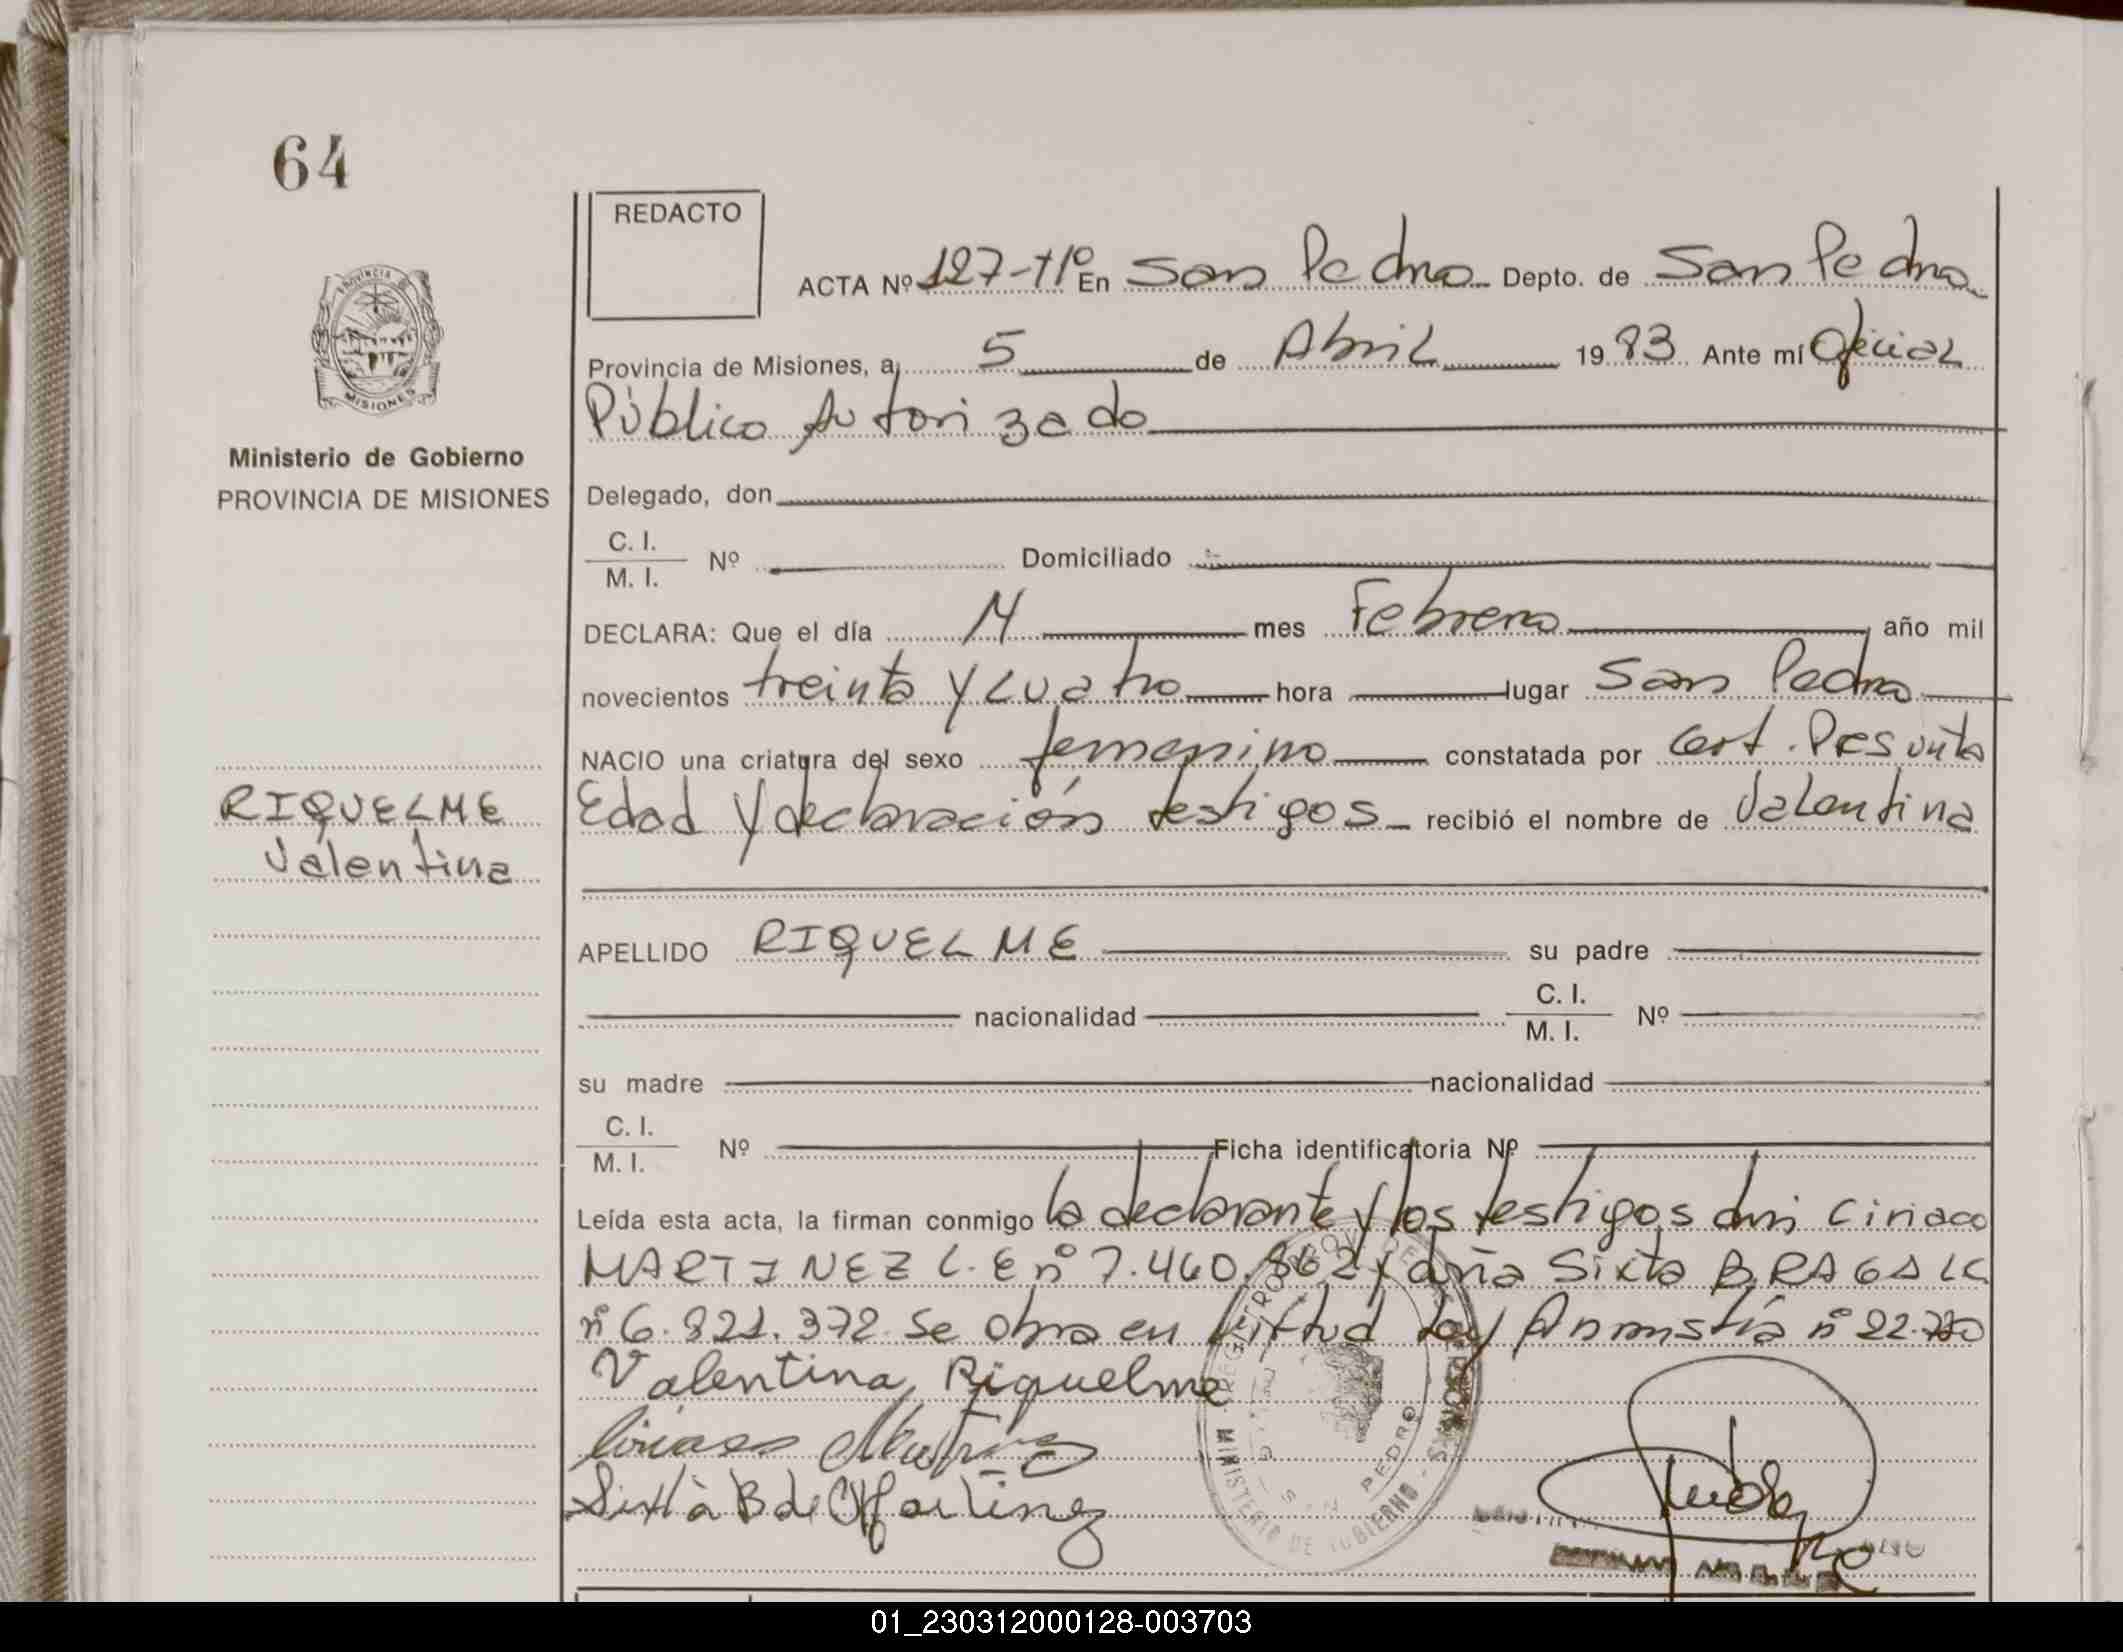 64
REDACTO
ACTA Nº 127-Tº En San Pedro Depto. de San Pedro
Provincia de Misiones, a 5 de Abril 1983 Ante mí Oficial
Público Autorizado
PROVINCIA
MISIONES
Ministerio de Gobierno
PROVINCIA DE MISIONES
Delegado, don
C. I.
M. I. Nº Domiciliado
DECLARA: Que el día mes Febrero año mil
novecientos treinta y cuatro hora lugar San Pedro
NACIO una criatura del sexo femenino constatada por Cert. Presunta
Edad y declaración testigos recibió el nombre de Valentina
RIQUELME
Valentina
APELLIDO RIQUELME su padre
nacionalidad C. I.
M. I. Nº
su madre nacionalidad
C. I.
M. I. Nº Ficha identificatoria Nº
Leída esta acta, la firman conmigo la declarante y los testigos don Ciriaco
MARTINEZ L.E nº 7.460.862 y doña Sixta BRAGA LC
nº 6.821.372 Se obra en virtud Ley Amnistía nº
Valentina Riquelme
Ciriaco Martinez
Sixta B de Martinez
MINISTERIO DE GOBIERNO
SAN PEDRO
01_230312000128-003703